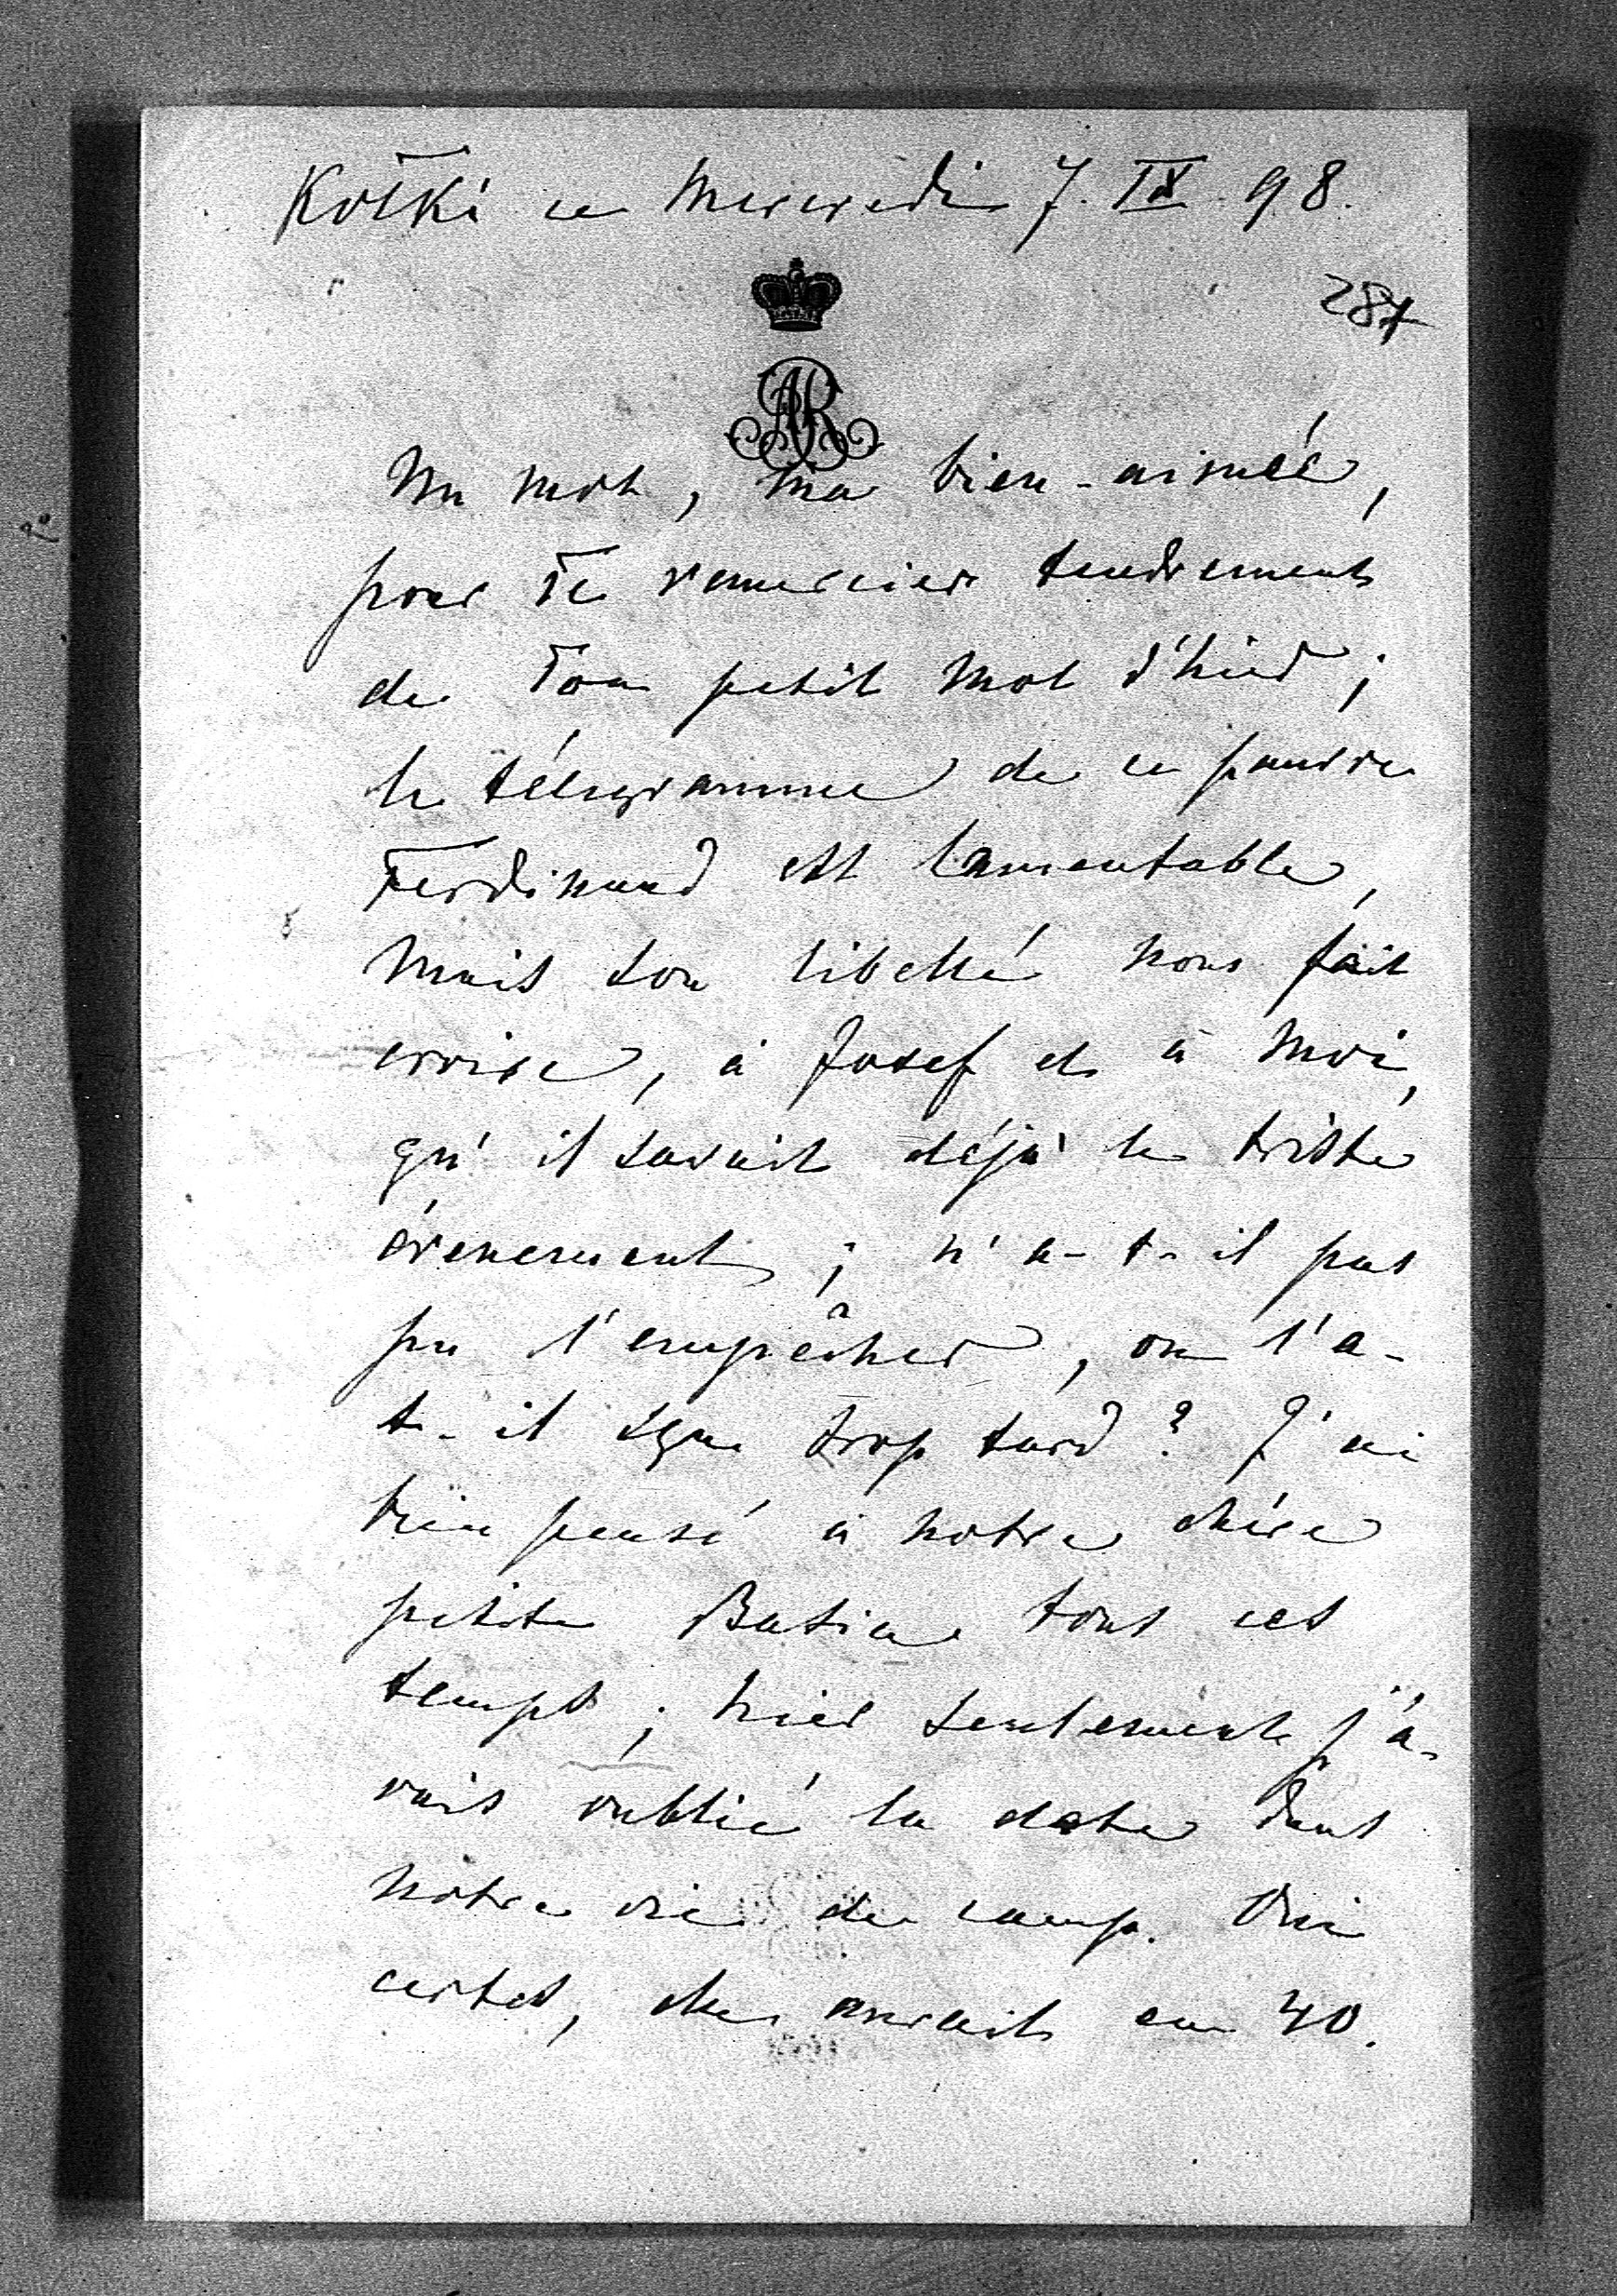 Kotki ce Mercredi 7. IX 98.
287
AR
Un mot, ma bien-aimée,
pour Te remercier tendrement
de Ton petit mot d'hier;
le télégramme de ce pauvre
Ferdinand est lamentable,
mais son libellé nous fait
croire, à Josef et à moi,
qu'il savait déjà le triste
évenement; n'a-t-il pas
pu l'empêcher, ou l'a-
t-il sçu trop tard? J'ai
bien pensé à notre chère
petite tout ces
temps; hier seulement j'a-
vais oublié la date dans
notre vie de camp. Oui
certes, elle aurait eu 40.